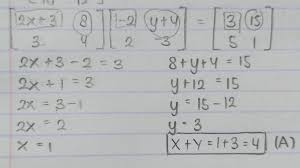 [2x+3 8] [-2 y+4] = [3 15]
[3 4] [2 -3] [5 1]
2x+3-2=3 8+y+4=15
2x+1=3 y+12=15
2x=3-1 y=15-12
2x=2 y=3
x=1 x+y=1+3=4 (A)